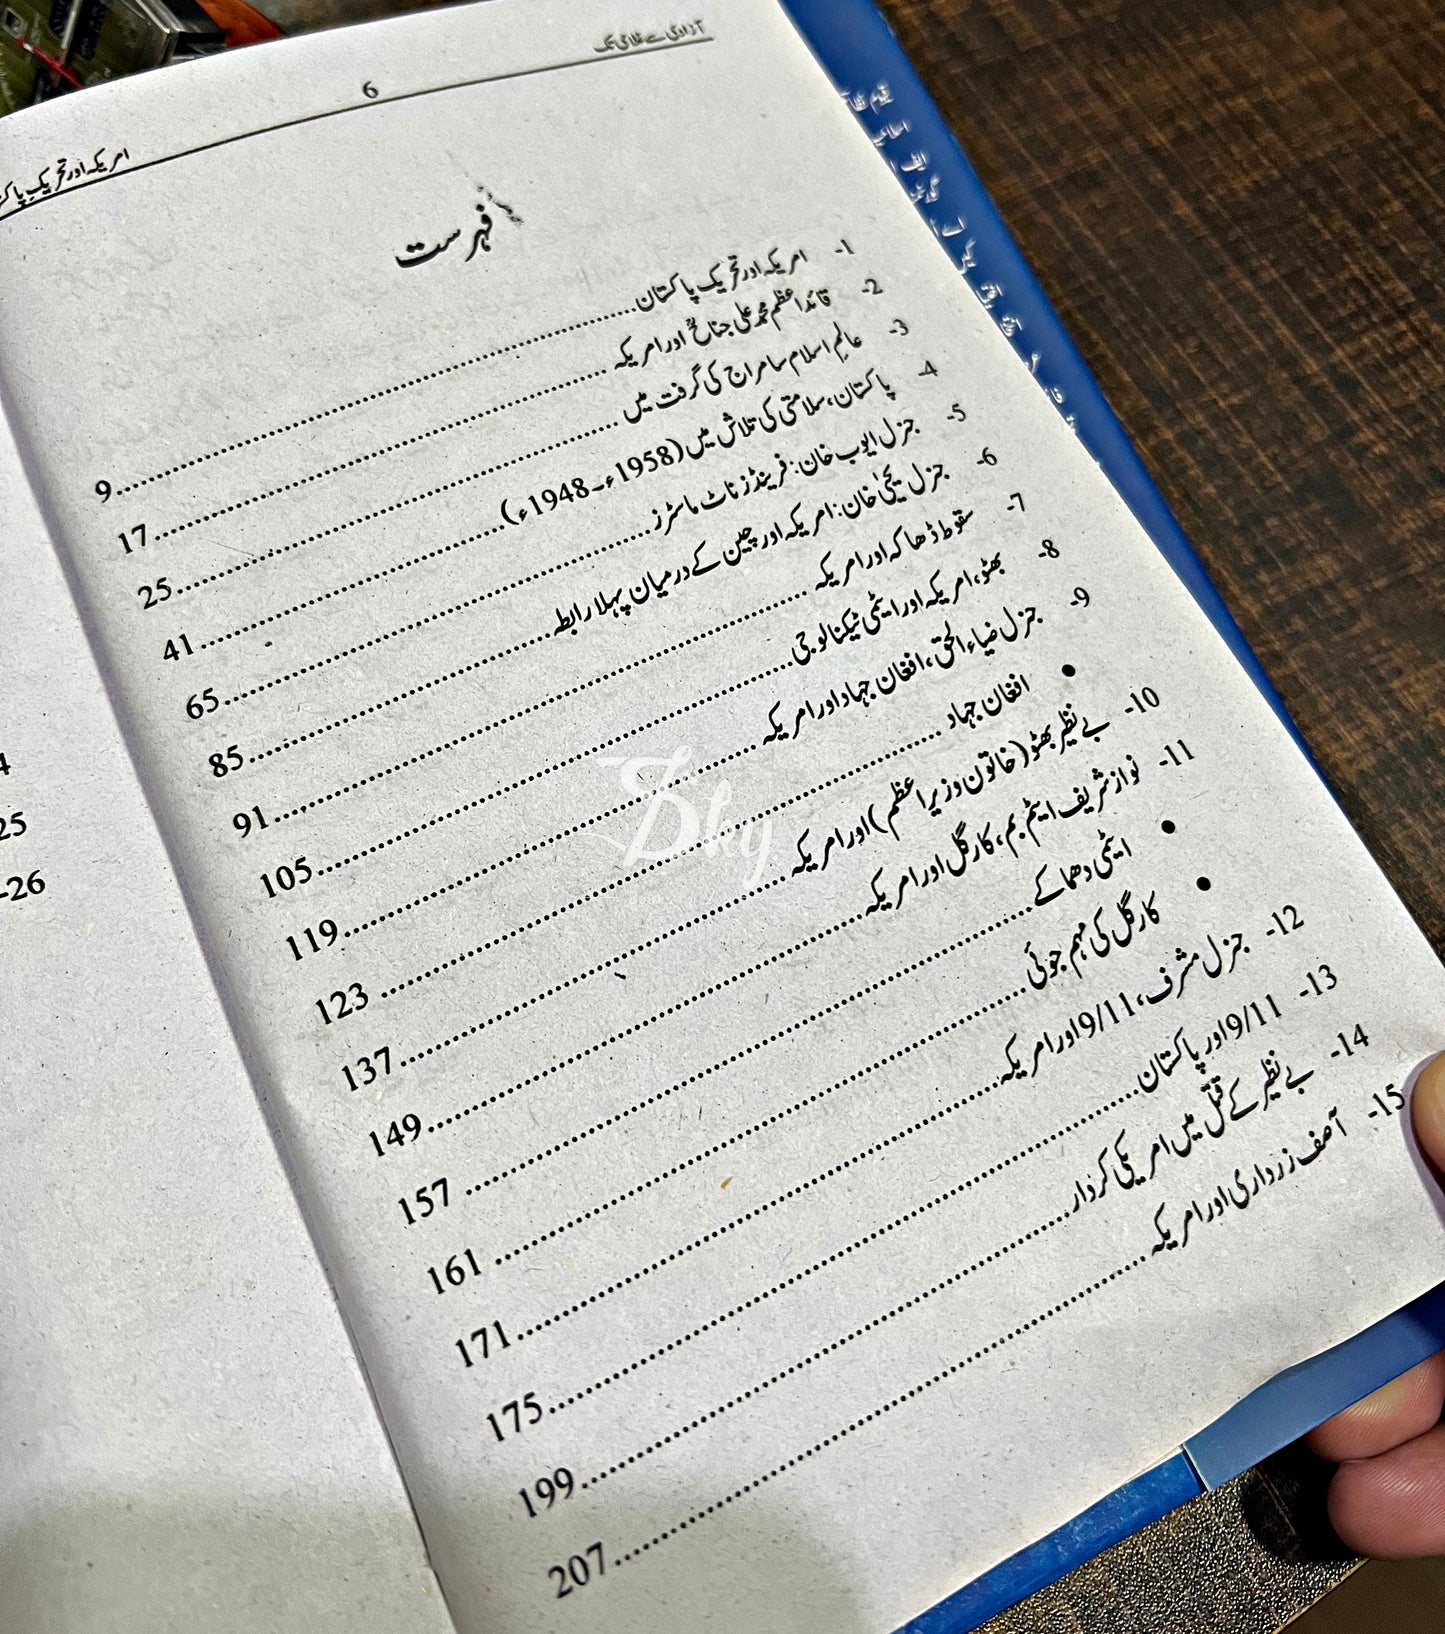 آزادی سے غلامی تک
6
امریکہ اور تحریکِ پاکستان
فہرست
1- امریکہ اور تحریک پاکستان ........ 9
2- قائداعظم محمد علی جناحؒ اور امریکہ ........ 17
3- عالمِ اسلام سامراج کی گرفت میں ........ 25
4- پاکستان، سلامتی کی تلاش میں (1958ء-1948ء) ........ 41
5- جنرل ایوب خان: فرینڈز ناٹ ماسٹرز ........ 65
6- جنرل یحییٰ خان: امریکہ اور چین کے درمیان پہلا رابطہ ........ 85
7- سقوط ڈھاکہ اور امریکہ ........ 91
8- بھٹو، امریکہ اور ایٹمی ٹیکنالوجی ........ 105
9- جنرل ضیاء الحق، افغان جہاد اور امریکہ ........ 119
● افغان جہاد ........ 123
10- بے نظیر بھٹو (خاتون وزیراعظم) اور امریکہ ........ 137
11- نواز شریف ایٹم بم، کارگل اور امریکہ ........ 149
● ایٹمی دھماکے ........ 157
● کارگل کی مہم جوئی ........ 161
12- جنرل مشرف، 9/11 اور امریکہ ........ 171
13- 9/11 اور پاکستان ........ 175
14- بے نظیر کے قتل میں امریکی کردار ........ 199
15- آصف زرداری اور امریکہ ........ 207
4
25
-26
Dky